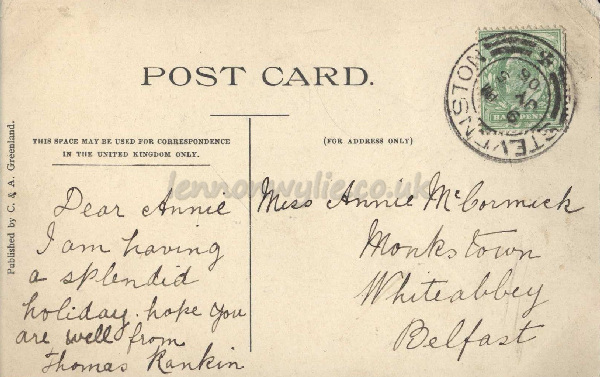 POST CARD.
THIS SPACE MAY BE USED FOR CORRESPONDENCE
IN THE UNITED KINGDOM ONLY.
(FOR ADDRESS ONLY)
Published by C. & A. Greenland.
STEVENSTON
HALFPENNY
lennonwylie.co.uk
Dear Annie
I am having
a splendid
holiday. hope you
are well from
Thomas Rankin
Miss Annie McCormick
Monkstown
Whiteabbey
Belfast